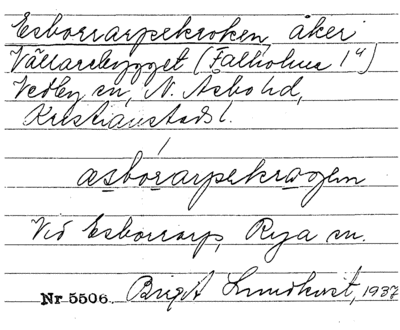 Esborrarpekroken, åker
Vällarebygget (Falholma 1⁴)
Vedby sn, N. Åsbo hd,
Kristianstads l.
asborarpekrogen
Vid Esborrarp, Rya sn.
Nr 5506. Birgit Lundkvist, 1937